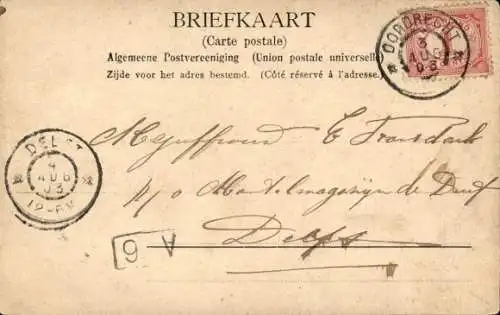 BRIEFKAART
(Carte postale)
Algemeene Postvereeniging (Union postale universelle
Zijde voor het adres bestemd. (Côté réservé à l'adresse.
DORDRECHT
3
AUG
03
Mejuffrouw E
p/o Mantelmagazijn de Duif
Delft
DELFT
4
AUG
03
A 6